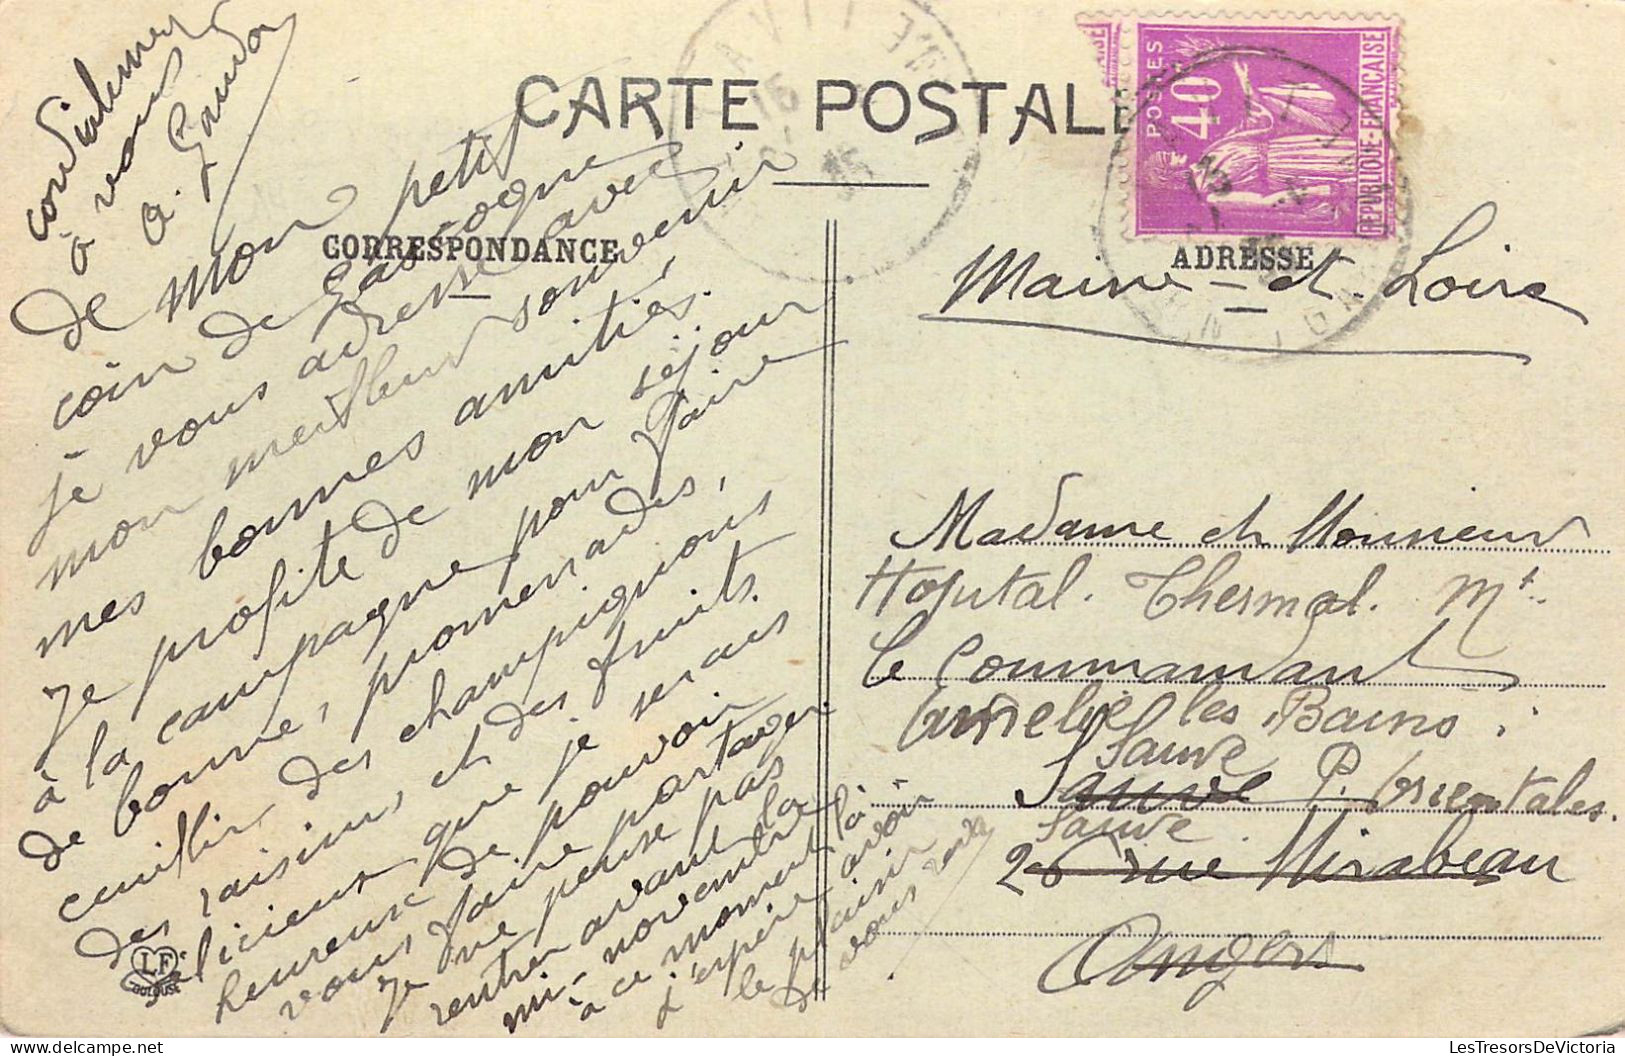 CARTE POSTALE
CORRESPONDANCE
ADRESSE
POSTES
40
REPUBLIQUE-FRANÇAISE
De mon petit
coin de Gascogne
je vous adresse avec
mon meilleur souvenir
mes bonnes amitiés.
Je profite de mon séjour
à la campagne pour faire
de bonnes promenades,
cueillir des champignons
des raisins, et des fruits.
délicieux que je serais
heureux de pouvoir
vous faire partager.
Je ne pense pas
rentrer avant la
mi-novembre
à ce moment là
j'espère avoir
le plaisir
de vous voir
cordialement
à vous
Maine-et-Loire
Madame et Monsieur
Hopital. Thermal. Mt.
le Commandant
les Bains.
Sauve
Sauve P. Orientales.
Sauve
26 rue Mirabeau
Angers
LF
TOULOUSE
LesTresorsDeVictoria